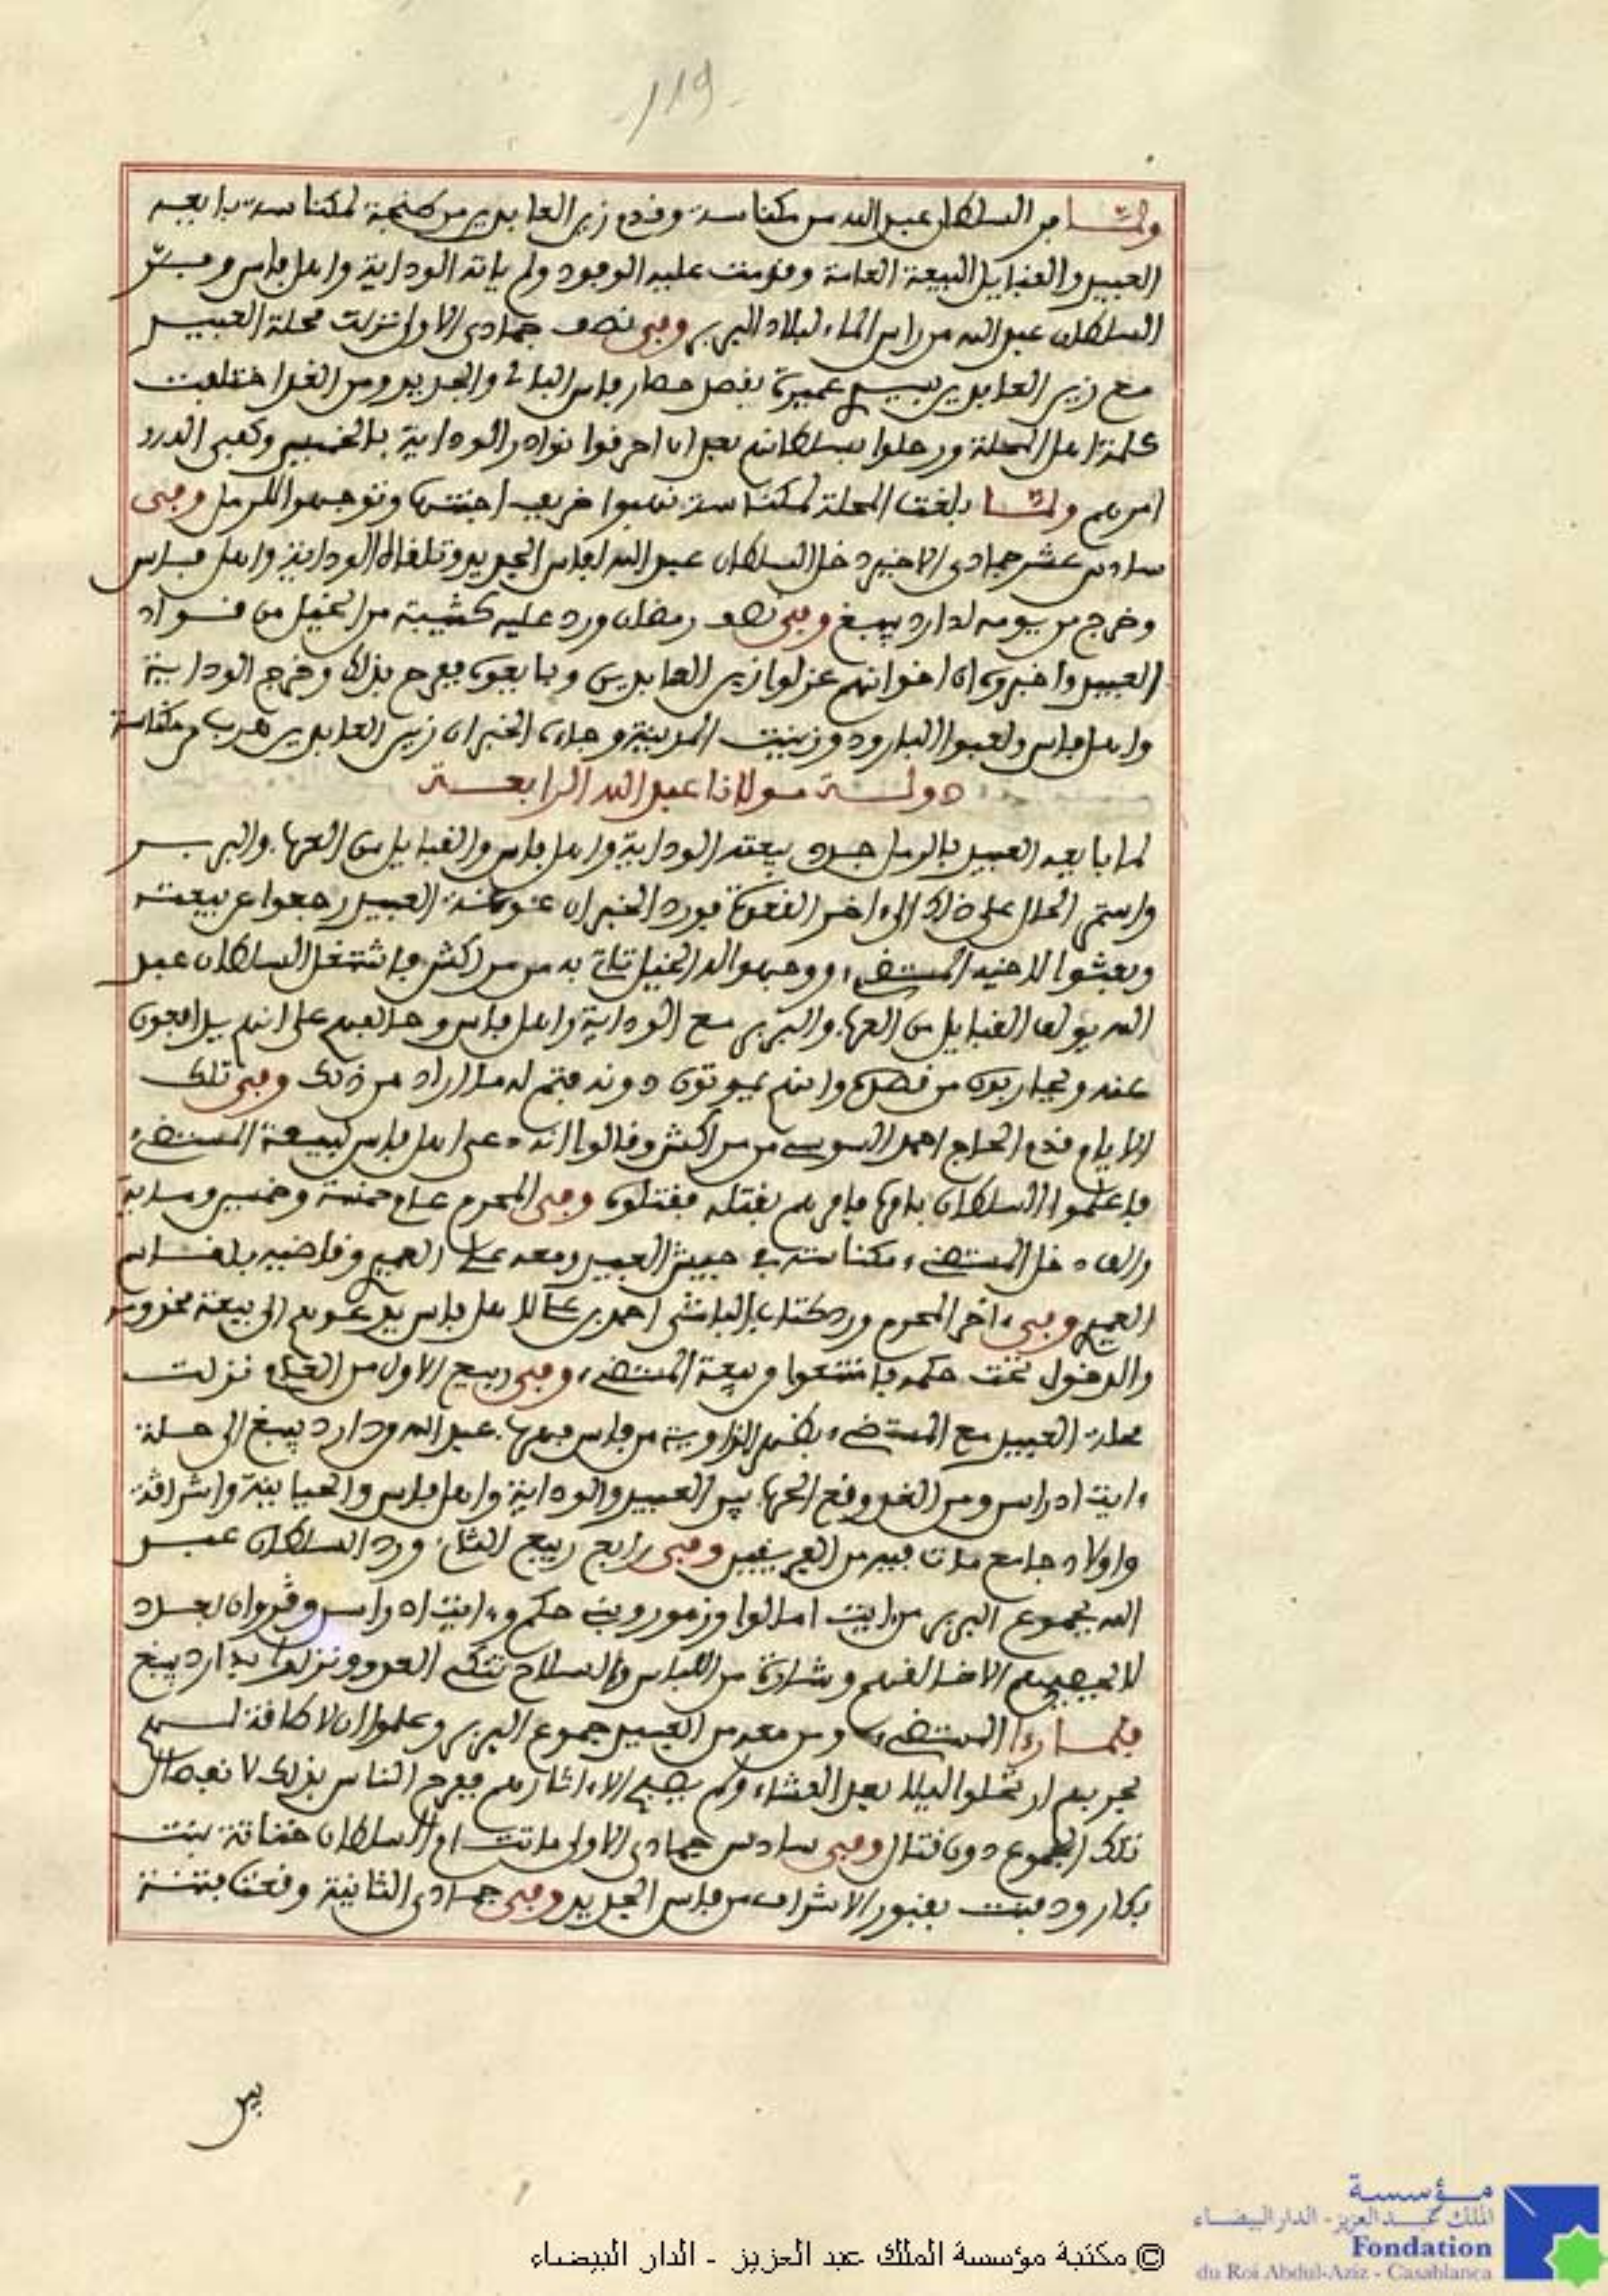 -119-
ولما فر السلطان عبد الله من مكناسة وقدم زين العابدين من طنجة لمكناسة بايعه
العبيد والقبايل البيعة العامة وقدمت عليه الوفود ولم ياته الوداية واهل فاس وفر
السلطان عبد الله من راس الماء لبلاد البربر وفي نصف جمادى الاولى نزلت محلة العبيد
مع زين العابدين بسيدي عميرة بقصد حصار فاس البالي والجديد ومن الغد اختلفت
كلمة اهل المحلة ورحلوا بسلطانهم بعد ان احرقوا نوادر الوداية بالخميس وكفى الله
امرهم ولما بلغت المحلة لمكناسة نهبوا خريف اجنتها وتوجهوا للرمل وفي
سادس عشر جمادى الاخير دخل السلطان عبد الله لفاس الجديد وتلقاه الوداية واهل فاس
وخرج من يومه لدار دبيبغ وفي نصف رمضان ورد عليه كتيبة من الخيل من قواد
العبيد واخبروه ان اخوانهم عزلوا زين العابدين وبايعوه ففرح بذلك وخرج الوداية
واهل فاس ولعبوا البارود وزينت المدينة وجاءه الخبر ان زين العابدين هرب من مكناسة
دولة مولانا عبد الله الرابعة
لما بايعه العبيد بالرمل جدد بيعته الوداية واهل فاس والقبايل من العرب والبربر
واستمر الحال على ذلك الى اخر القعدة فورد الخبر ان العبيد رجعوا عن بيعته
وبعثوا لاخيه المستضيء ووجهوا له الخيل تاتي به من مراكش فاشتغل السلطان عبد
الله يولف القبايل من العرب والبربر مع الوداية واهل فاس وحالفهم على انهم يدافعون
عنه ويحاربون من قصده وانهم يموتون دونه فتم له ما اراد من ذلك وفي تلك
الايام قدم الحاج احمد السوسي من مراكش وقالوا انه دعى اهل فاس لبيعة المستضيء
فاعلموا السلطان بامره فامرهم بقتله فقتلوه وفي المحرم عام خمسة وخمسين وماية
والف دخل المستضيء مكناسة في جيش العبيد ومعه وقاضيه بلقاسم
العميري وفي اخر المحرم ورد كتاب الباشى احمد بن علي لاهل فاس يدعوهم الى بيعة مخدومه
والدخول تحت حكمه فامتنعوا من بيعة المستضيء وفي ربيع الاول من العام نزلت
محلة العبيد مع المستضيء بظهر الزاوية من فاس ففر عبد الله من دار دبيبغ الى حلة
ايت ادراسن ومن الغد وقع الحرب بين العبيد والوداية واهل فاس والحياينة واشراقة
واولاد جامع مات فيه من الفريقين وفي رابع ربيع الثاني ورد السلطان عبد
الله بجموع البربر من ايت امالوا وزمور وبني حكم وايت ادراسن وقروان بعدد
لا يحصيهم الا خالقهم وشارة من اللباس والسلاح تنكي العدو ونزلوا بدار دبيبغ
فلما رءا المستضيء ومن معه من العبيد جموع البربر وعلموا ان لا طاقة لهم
بحربهم ارتحلوا ليلا بعد العشاء ولم يصبح الا اثارهم ففرح الناس بذلك لانفصال
تلك الجموع دون قتال وفي سادس جمادى الاولى ماتت ام السلطان خناثة بنت
بكار ودفنت بقبور الاشراف من فاس الجديد وفي جمادى الثانية وقعت فتنة
بين
مؤسسة
الملك عبد العزيز - الدار البيضاء
Fondation
du Roi Abdul-Aziz - Casablanca
© مكتبة مؤسسة الملك عبد العزيز - الدار البيضاء